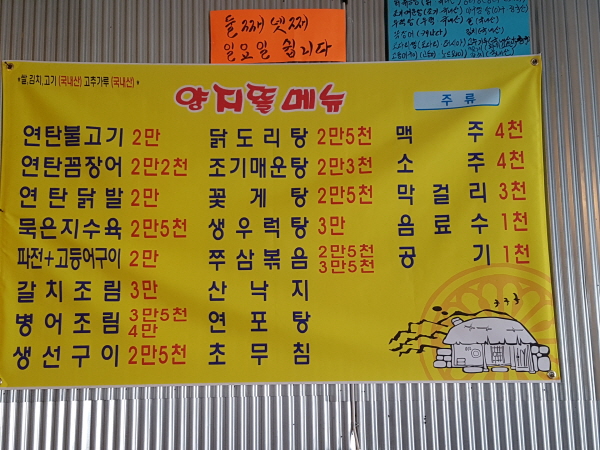 둘째 넷째
일요일 쉽니다
*쌀,김치,고기(국내산) 고추가루(국내산)*
양지뜰 메뉴
주 류
연탄불고기 2만
연탄꼼장어 2만2천
연탄닭발 2만
묵은지수육 2만5천
파전+고등어구이 2만
갈치조림 3만
병어조림 3만5천 4만
생선구이 2만5천
닭도리탕 2만5천
조기매운탕 2만3천
꽃게탕 2만5천
생우럭탕 3만
쭈삼볶음 2만5천 3만5천
산낙지
연포탕
초무침
맥주 4천
소주 4천
막걸리 3천
음료수 1천
공기 1천